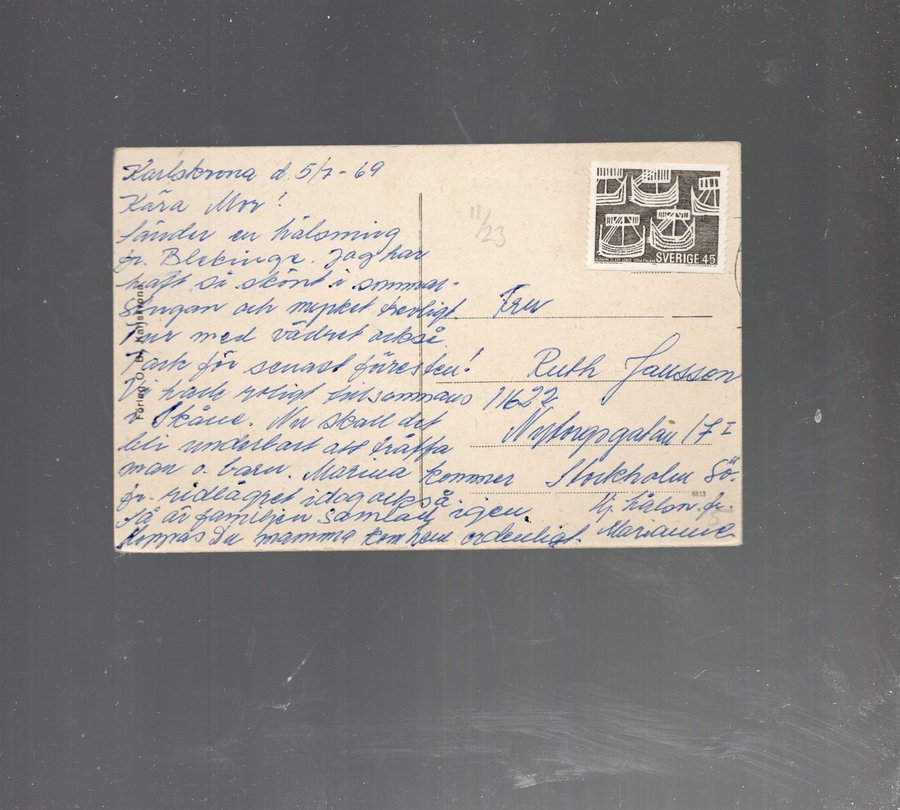 Karlskrona d. 5/7-69
Kära Mor!
Sänder en hälsning
fr. Blekinge. Jag har
haft så skönt i sommar-
stugan och mycket trevligt.
Tur med vädret också.
Tack för senast förresten!
Vi hade roligt tillsammans
i Skåne. Nu skall det
bli underbart att träffa
man o. barn. Marina kommer
fr. ridlägret idag också
så är familjen samlad igen.
Hoppas Du mamma kom hem ordentligt.
Hj. hälsn. fr.
Marianne
11/23
SVERIGE 45
Fru
Ruth Jansson
11622
Nytorgsgatan 17 I
Stockholm Sö.
6813
Förlag O. B. Karlskrona